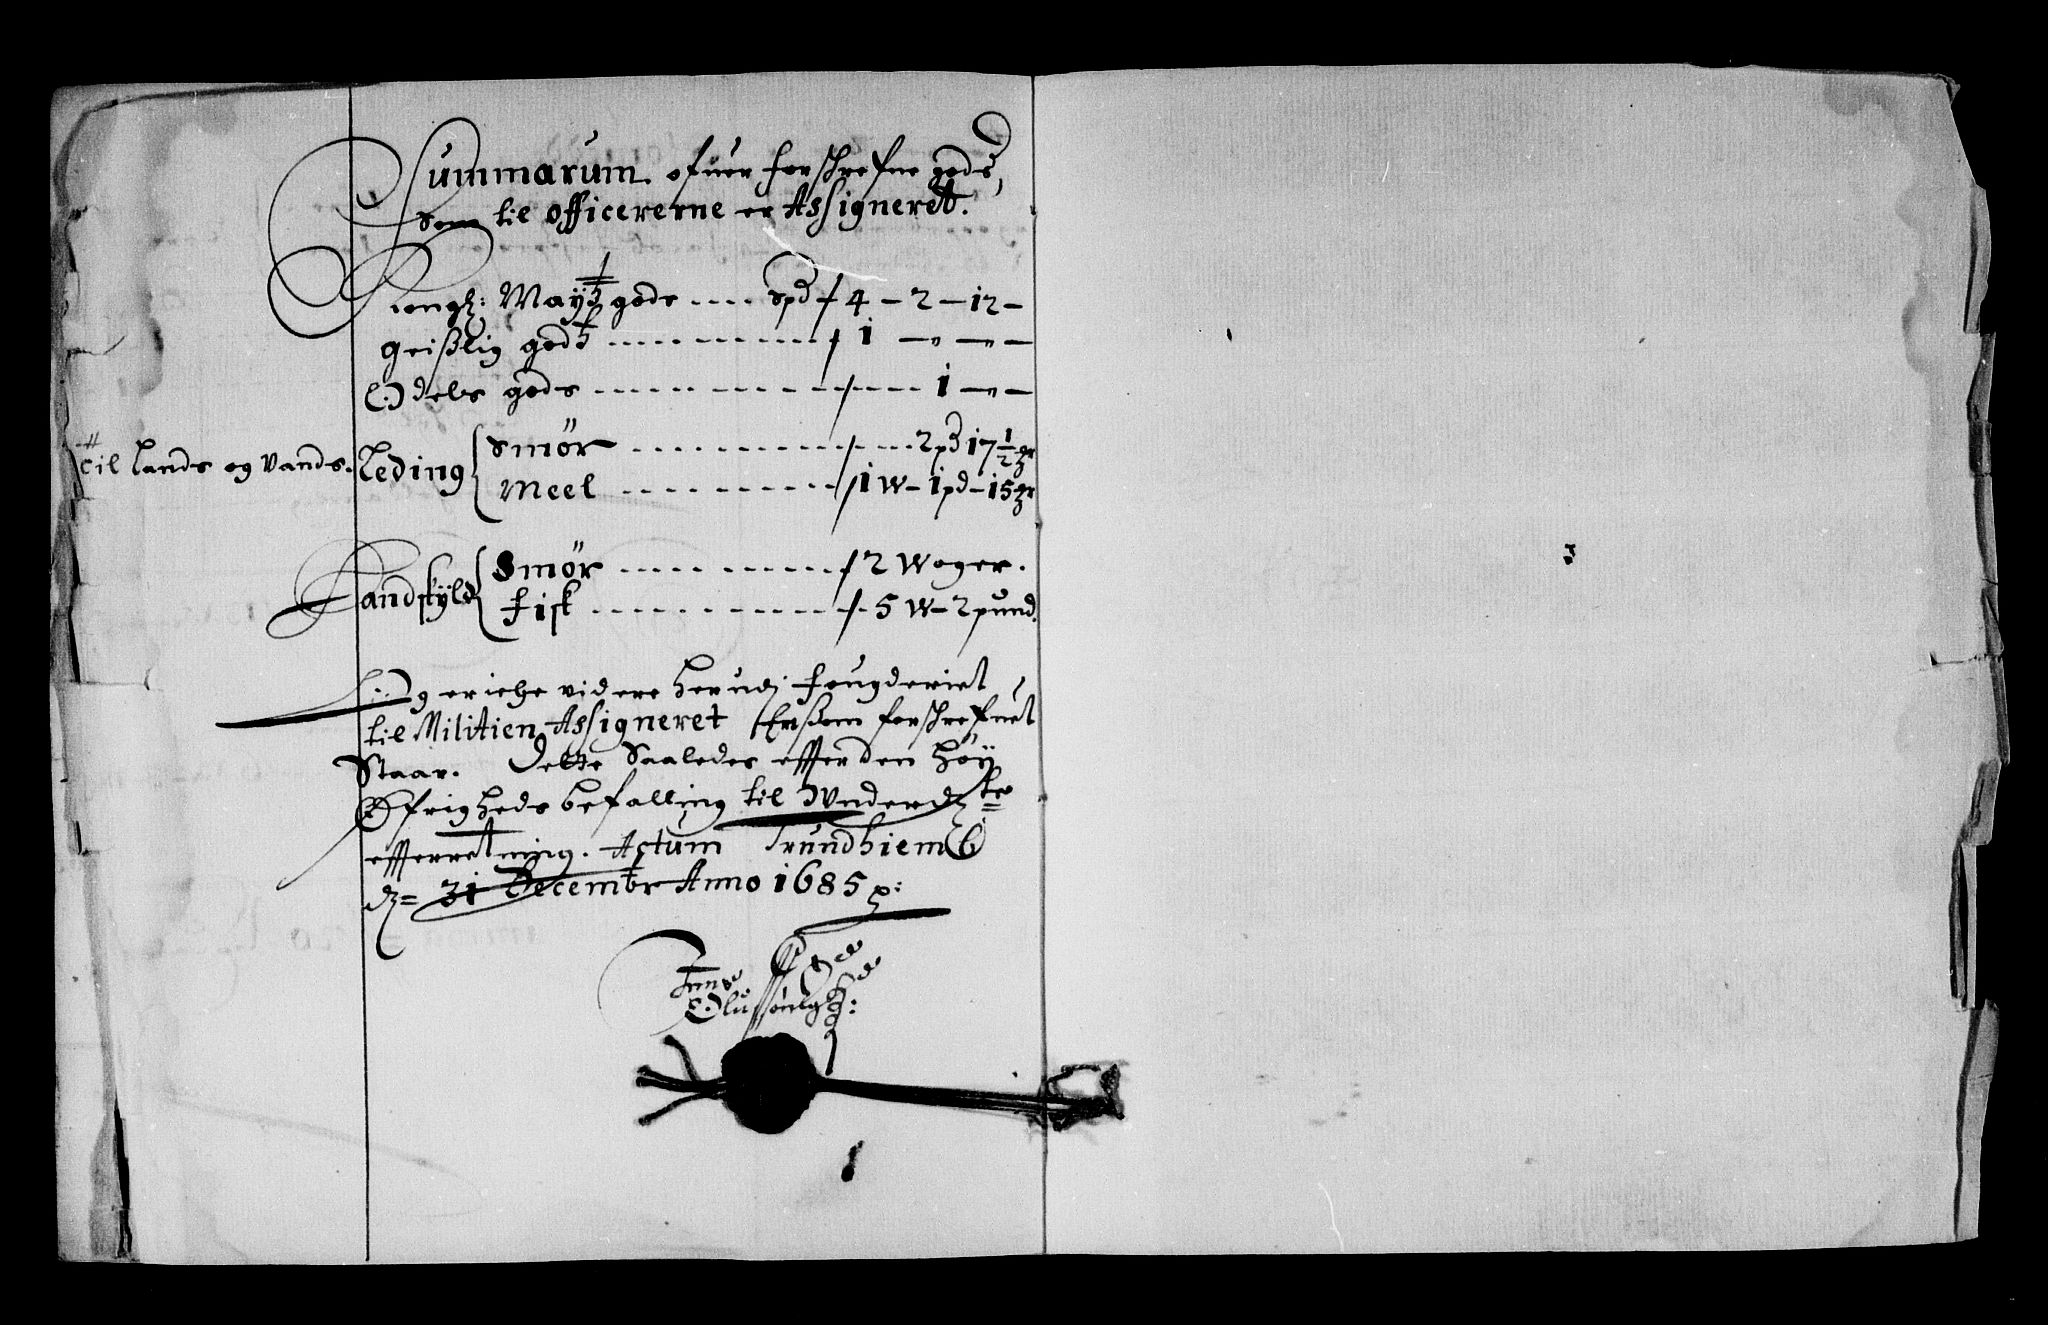 Summarum ofuer forschrefne gods,
som til officererne er Assigneret.
Kongl: Mayts gods .... spd / 4 – 2 – 12 –
Geistlig gods .... / 1 – „ – „ –
Odels gods .... / .... 1 – „ –
Til Lands og Vands. Leding { Smør .... / .... 2 pd 17 1/2
Meel .... / 1 W – 1 pd – 15
Landskyld { Smør .... / 2 Woger.
Fisk .... / 5 W – 2 pund.
Og er iche videre her udj fougderiet
til Militien Assigneret forschrefuet
Staar. Dette Saaledes effter den høy
Øfrigheds befalling til Underd: te
effterretning. Actum Trundhiem
d= 31 Decembr Anno 1685
Jens
Olufssøn